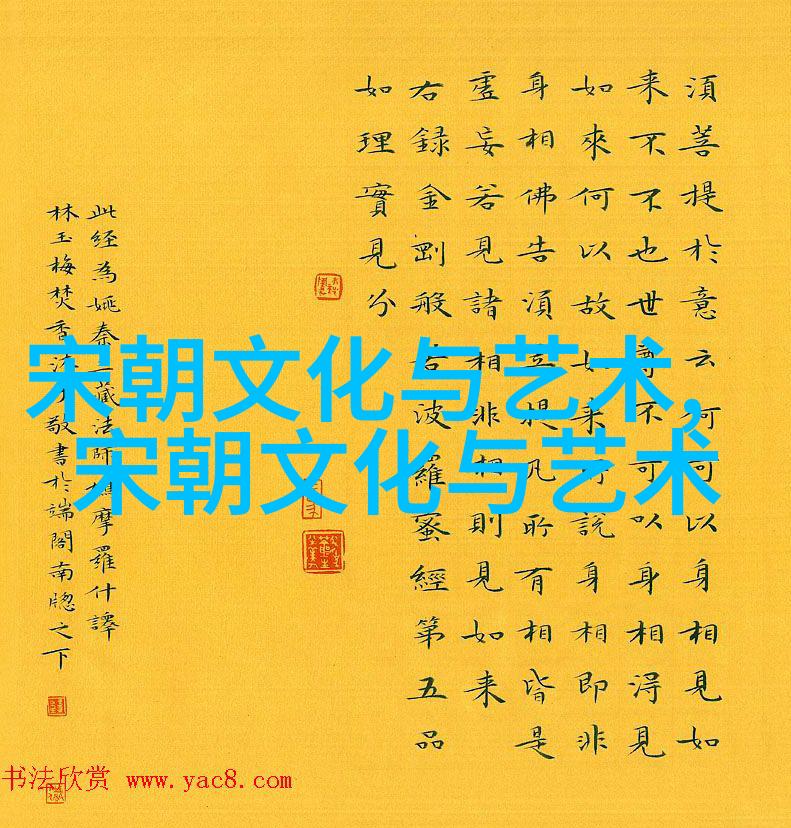 須菩提於意云何可以身相見如
来不不也世尊不可以身相得見
如來何以故如来所説身相即非
身相佛告須菩提凡所有相皆是
虛妄若見諸相非相則見如来
右録金剛般若波羅蜜經第五品
如理實見分
此経為姚秦三藏法師鳩摩羅什譯
林玉梅焚香沐手敬書於端閣南牕之下
宋朝文化与艺术,
宋朝文化与艺术
书法欣赏 www.yac8.com